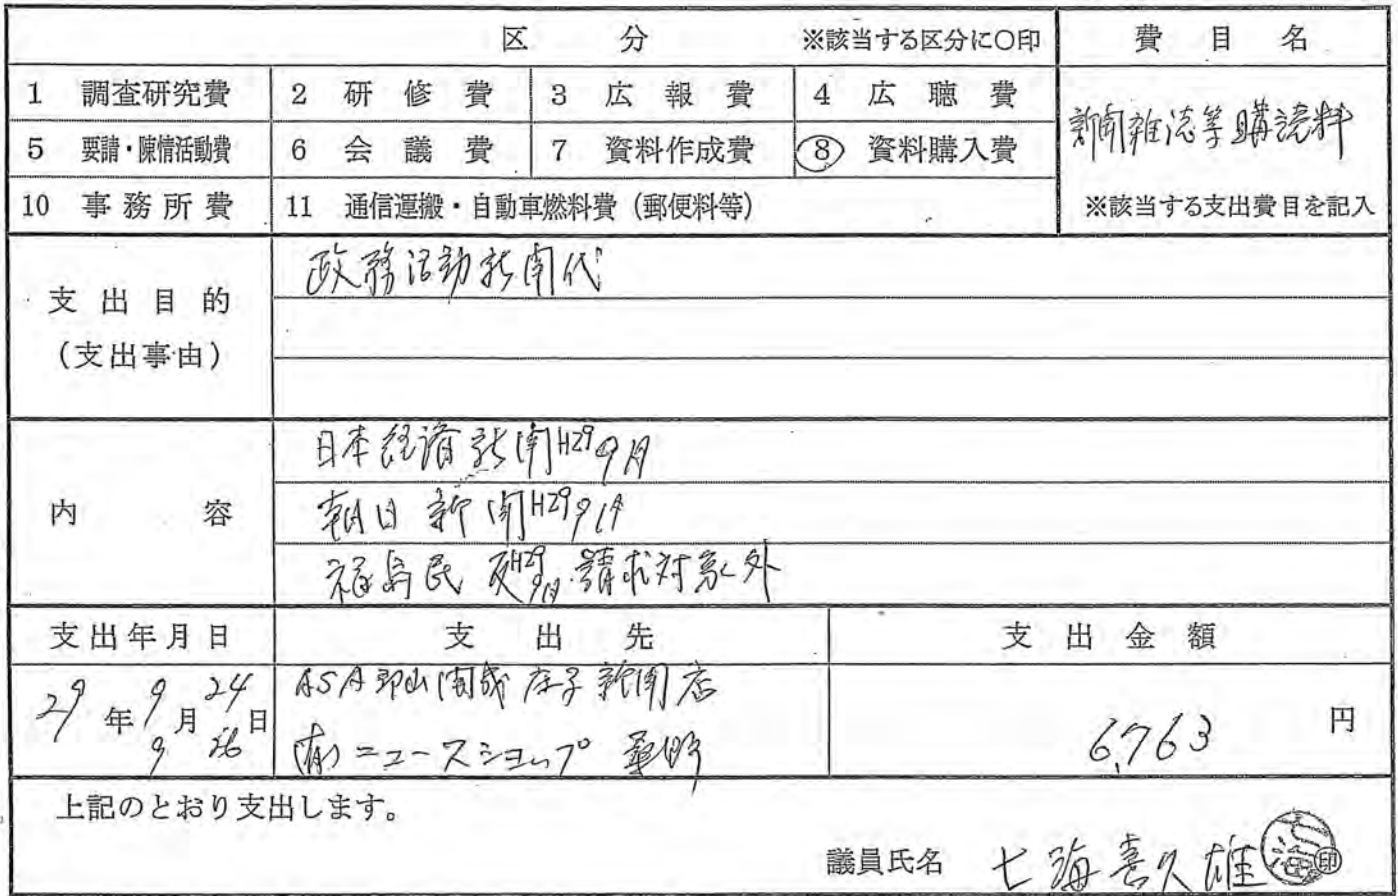 区 分 ※該当する区分に○印 費 目 名
1 調査研究費 2 研修費 3 広報費 4 広聴費
新聞雑誌等購読料
5 要請・陳情活動費 6 会議費 7 資料作成費 ⑧ 資料購入費
10 事務所費 11 通信運搬・自動車燃料費（郵便料等） ※該当する支出費目を記入
支出目的
(支出事由)
政務活動新聞代
内 容
日本経済新聞H29 9月
朝日新聞H29 9月
福島民 H29 9月 請求対象外
支出年月日 支出先 支出金額
29年9月24日 ASA郡山開成 新聞店
9 26 (有)ニュースショップ
6,763 円
上記のとおり支出します。
議員氏名 七海喜久雄 印